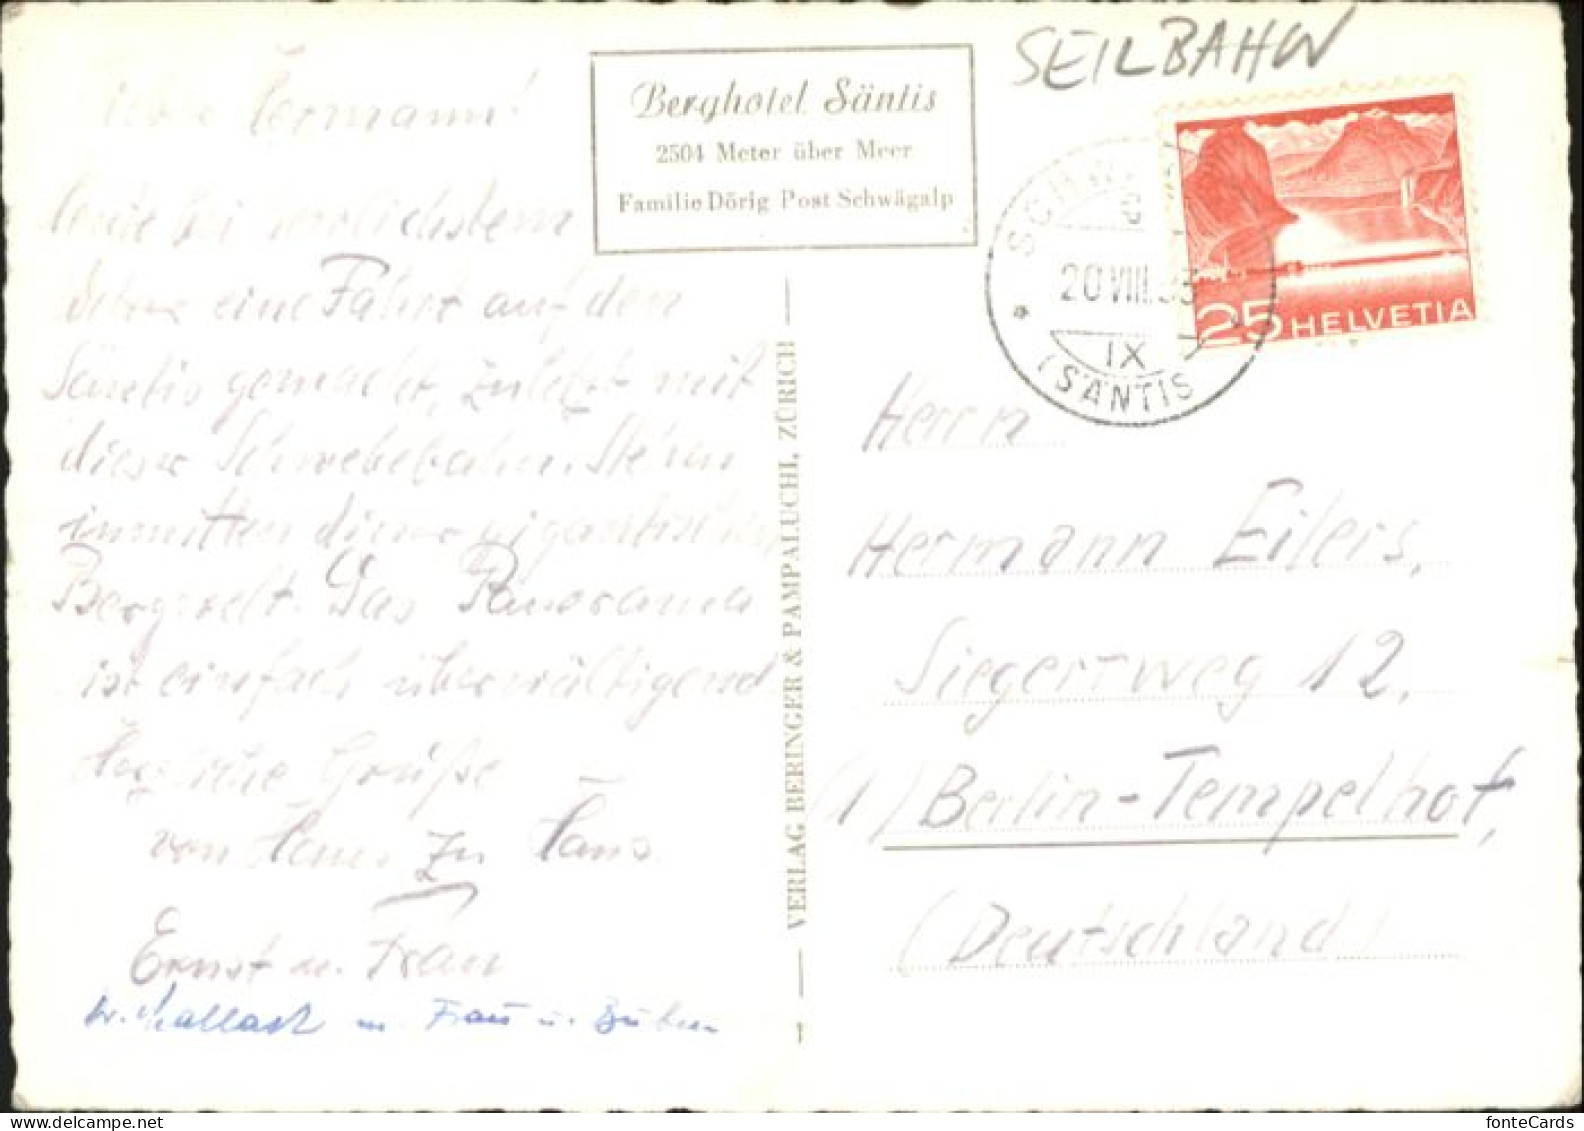 SEILBAHN
Berghotel Säntis
2504 Meter über Meer
Familie Dörig Post Schwägalp
20 VIII. 53
IX
(SÄNTIS)
25 HELVETIA
Hermann!
heute bei herrlichstem
eine Fahrt auf den
Säntis gemacht, zuletzt mit
dieser Schwebebahn. Stehen
inmitten dieser gigantischen
Bergwelt. Das Panorama
ist einfach überwältigend
Herzliche Grüße
von Haus zu Haus
Ernst u. Frau
u. Frau u. Buben
VERLAG BERINGER & PAMPALUCHI, ZÜRICH
Herrn
Hermann Eilers,
Siegertweg 12,
(1) Berlin-Tempelhof,
(Deutschland)
fonteCards